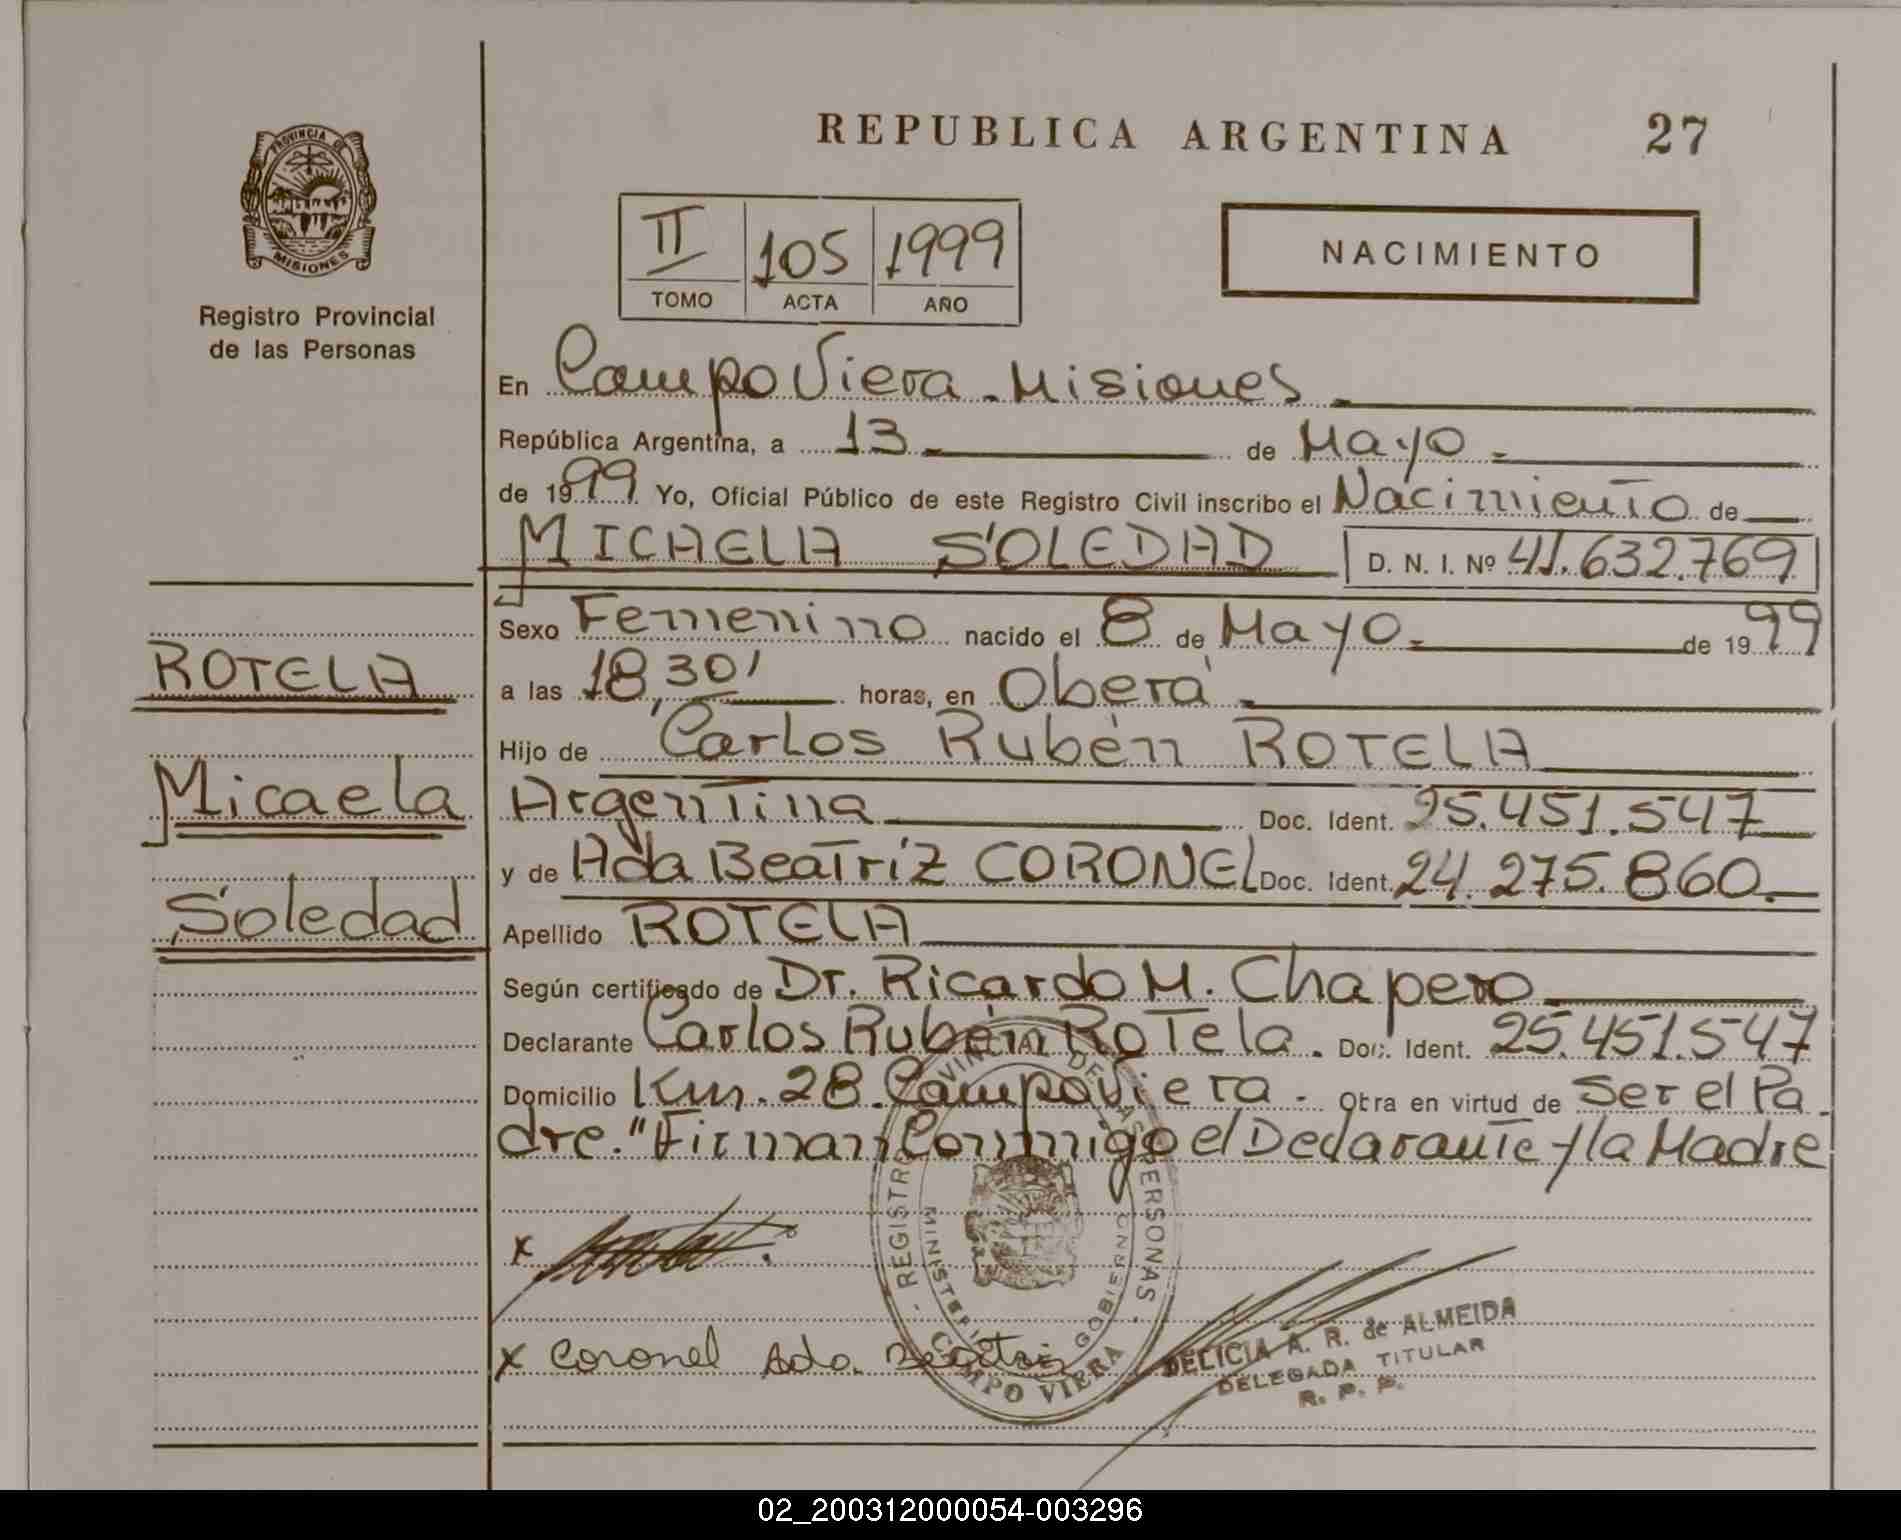 REPUBLICA ARGENTINA 27
PROVINCIA DE
MISIONES
Registro Provincial
de las Personas
II 105 1999
TOMO ACTA AÑO
NACIMIENTO
En Campo Viera - Misiones -
República Argentina, a 13 - de Mayo -
de 1999 Yo, Oficial Público de este Registro Civil inscribo el Nacimiento de
MICAELA SOLEDAD D. N. I. Nº 41.632.769
Sexo Femenino nacido el 8 de Mayo - de 1999
a las 18,30' horas, en Oberá -
Hijo de Carlos Rubén ROTELA
Argentina Doc. Ident. 25.451.547
y de Ada Beatríz CORONEL Doc. Ident. 24.275.860.-
Apellido ROTELA
Según certificado de Dr. Ricardo M. Chapero
Declarante Carlos Rubén Rotela. Doc. Ident. 25.451.547
Domicilio Km. 28. Campo Viera. Obra en virtud de Ser el Pa-
dre." Firman Conmigo el Declarante y la Madre
ROTELA
Micaela
Soledad
x
x Coronel Ada Beatriz
REGISTRO PROVINCIAL DE LAS PERSONAS
MINISTERIO GOBIERNO
CAMPO VIERA
DELICIA A. R. de ALMEIDA
DELEGADA TITULAR
R. P. P.
02_200312000054-003296